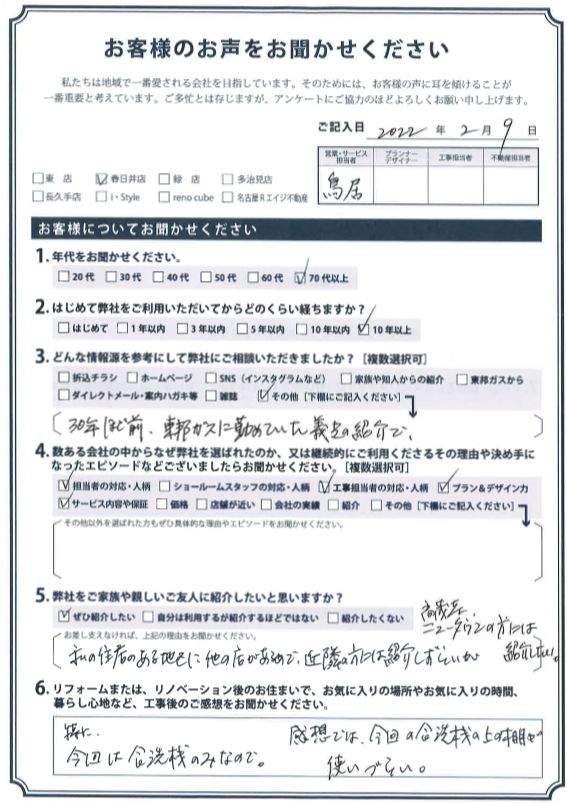 お客様のお声をお聞かせください
私たちは地域で一番愛される会社を目指しています。そのためには、お客様の声に耳を傾けることが
一番重要と考えています。ご多忙とは存じますが、アンケートにご協力のほどよろしくお願い申し上げます。
ご記入日 2022 年 2 月 9 日
営業・サービス担当者 プランナーデザイナー 工事担当者 不動産担当者
鳥居
□東 店 ☑春日井店 □緑 店 □多治見店
□長久手店 □i・Style □reno cube □名古屋Rエイジ不動産
お客様についてお聞かせください
1. 年代をお聞かせください。
□20代 □30代 □40代 □50代 □60代 ☑70代以上
2. はじめて弊社をご利用いただいてからどのくらい経ちますか?
□はじめて □1年以内 □3年以内 □5年以内 □10年以内 ☑10年以上
3. どんな情報源を参考にして弊社にご相談いただきましたか?[複数選択可]
□折込チラシ □ホームページ □SNS(インスタグラムなど) □家族や知人からの紹介 □東邦ガスから
□ダイレクトメール・案内ハガキ等 □雑誌 ☑その他[下欄にご記入ください]
30年ほど前、東邦ガスに勤めていた義兄の紹介で、
4. 数ある会社の中からなぜ弊社を選ばれたのか、又は継続的にご利用くださるその理由や決め手に
なったエピソードなどございましたらお聞かせください。[複数選択可]
☑担当者の対応・人柄 □ショールームスタッフの対応・人柄 ☑工事担当者の対応・人柄 ☑プラン&デザイン力
☑サービス内容や保証 □価格 □店舗が近い □会社の実績 □紹介 □その他[下欄にご記入ください]
その他以外を選ばれた方もぜひ具体的な理由やエピソードをお聞かせください。
5. 弊社をご家族や親しいご友人に紹介したいと思いますか?
☑ぜひ紹介したい □自分は利用するが紹介するほどではない □紹介したくない
お差し支えなければ、上記の理由をお聞かせください。
私の住居のある地区に他の店があるので、近隣の方には紹介しずらいが
高蔵寺
ニュータウンの方には
紹介したい。
6. リフォームまたは、リノベーション後のお住まいで、お気に入りの場所やお気に入りの時間、
暮らし心地など、工事後のご感想をお聞かせください。
特に、
今回は食洗機のみなので。
感想では、今回の食洗機の上の棚が
使いづらい。